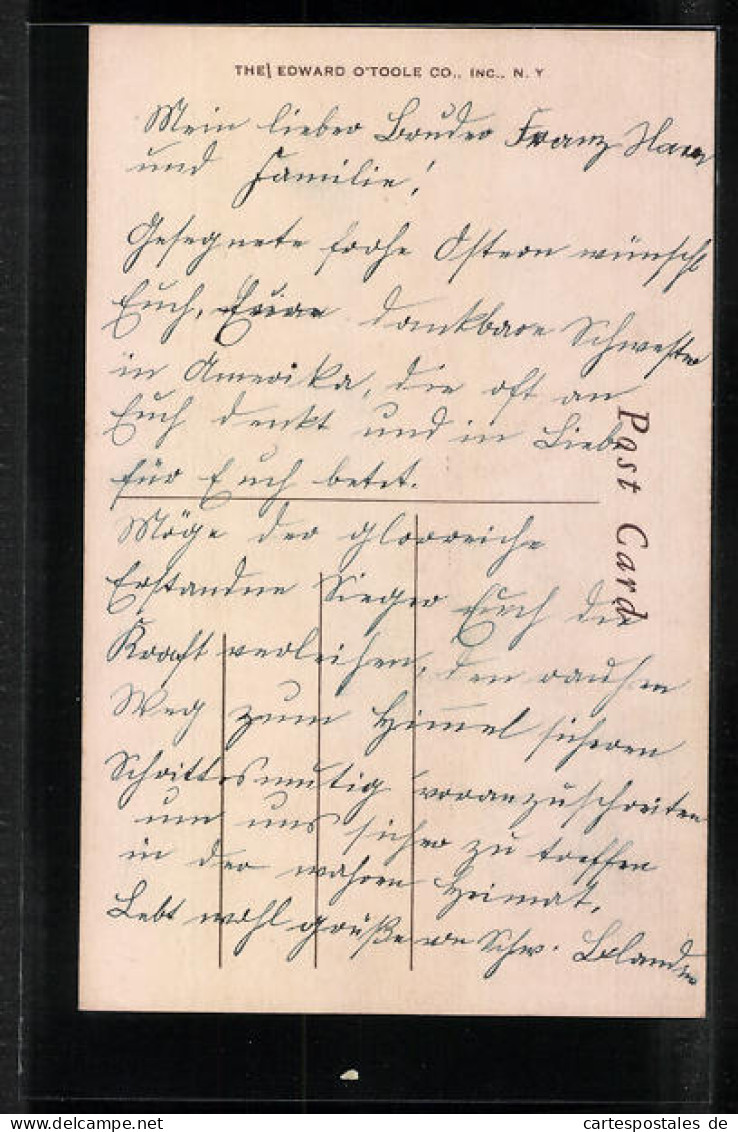 THE EDWARD O'TOOLE CO., INC., N. Y
Mein lieber Bruder Franz
und Familie!
Gesegnete frohe Ostern wünscht
Euch, Eure dankbare Schwester
in Amerika, die oft an
Euch denkt und in Liebe
für Euch betet.
Post Card
Möge der glorreiche
Erstandne Sieger Euch die
Kraft verleihen, den rauhen
Weg zum Himmel sicheren
Schrittes mutig voranzuschreiten
um uns sicher zu treffen
in der wahren Heimat.
Lebt wohl Schw.
cartespostales de